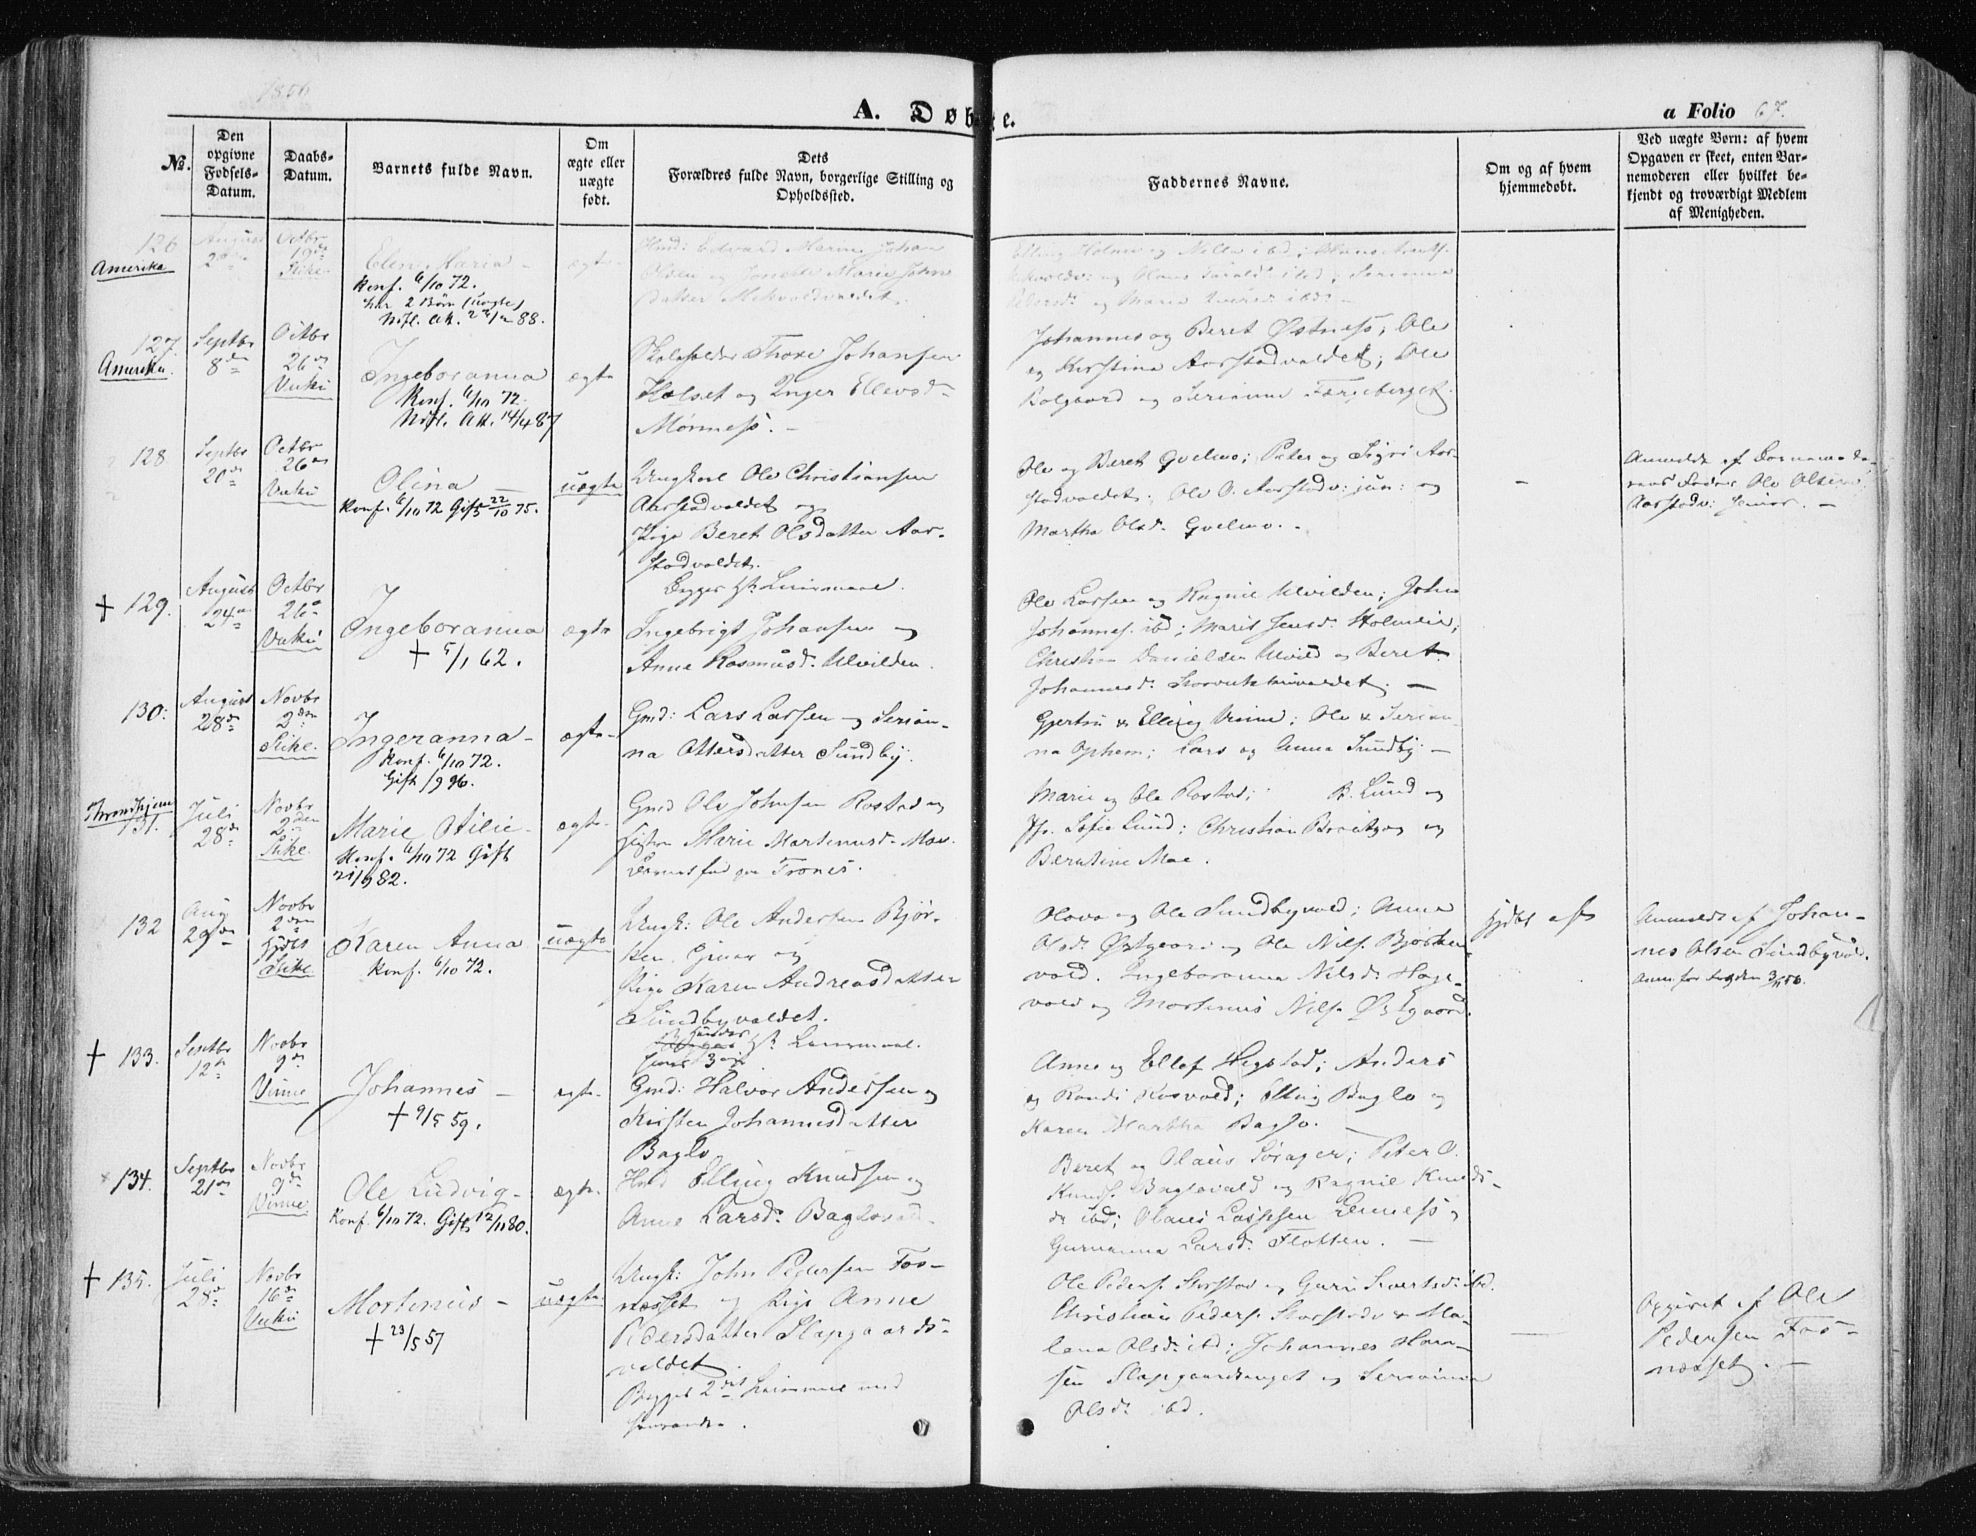 1856
A. Døbte.
a Folio 67.
No.
Den opgivne Fødsels-Datum.
Daabs-Datum.
Barnets fulde Navn.
Om ægte eller uægte født.
Dets Forældres fulde Navn, borgerlige Stilling og Opholdssted.
Faddernes Navne.
Om og af hvem hjemmedøbt.
Ved uægte Børn: af hvem Opgaven er skeet, enten Barnemoderen eller hvilket bekjendt og troværdigt Medlem af Menigheden.
126
Amerika
August
Octbr
19de
Stike.
Elen Maria
Konf. 6/10 72.
har 2 Børn (uægte)
ægte
Edvard Johan
Olsen og Marie John
datter
127.
Amerika.
Septbr
8de
Octbr
26de
Vuku
Ingeboranna
Konf. 6/10 72.
14/4 87
ægte
Skoleholder Thore Johansen
Holset og Inger Ellevsd.
Mønness.
Johannes og Beret Østness; Ole
og Kirstina Aarstadvaldet; Ole
Bolgaard og Serianna Færgeberget.
128
Septbr
20de
Octbr
26de
Vuku
Olina
Konf. 6/10 72 Gift 22/10 75.
uægte
Ungkarl Ole Christiansen
Aarstadvaldet og
Pige Beret Olsdatter Aar-
stadvaldet.
Begges 1ste Leiermaal.
Ole og Beret Qvelmo; Peter og Sigri Aar-
stadvaldet; Ole O. Aarstadv: jun: og
Martha Olsd. Qvelmo.
Anmeldt af Barnemode-
rens Fader Ole Olsen
Aarstadv: senior.
+ 129.
August
24de
Octbr
26de
Vuku
Ingeboranna
+ 5/1 62.
ægte
Ingebrigt Johansen og
Anne Rasmusd. Ulvilden.
Ole Larsen og Ragnil Ulvilden; John
Johannes. ibd; Marit Jensd. Holmlie;
Christian Danielsen Ulvild og Beret
Johannesd.
130.
August
28de
Novbr
2den
Stike.
Ingeranna
Konf. 6/10 72.
Gift /9 96.
ægte
Gmd: Lars Larsen og Serian-
na Ottersdatter Sundby.
Gjertru & Elling Vinne; Ole & Serian-
na Ophem; Lars og Anna Sundby.
Throndhjem
131.
Juli
28de
Novbr
2den
Stike.
Marie Otilie
Konf. 6/10 72 Gift
21/9 82.
ægte
Gmd Ole Johnsen Rostad og
Hustru Marie Martinusd. Moe.
Barnet født paa Trones.
Marie og Ole Rostad; B. Lund og
Jfr. Sofie Lund; Christian Braatgag og
Berntine Moe.
132
Aug
29de
Novbr
2den
Stike.
Karen Anna
Konf. 6/10 72.
uægte
Ungk: Ole Andersen Bjør-
ken og
Pige Karen Andreasdatter
Sundbyvaldet.
1ste Leiermaal.
Olava og Ole Sundbyvald; Anne
Olsd. Østgaard og Ole Nils. Bjørken-
vald. Ingeboranna Nilsd. Hage-
vald og Martinus Nils. Østgaard.
Anmeldt af Johan-
nes Olsen Sundbyvald.
+ 133.
Septbr
12te
Novbr
9de
Vinne
Johannes
+ 9/5 59.
ægte
Gmd: Halvor Andersen og
Kirsten Johannesdatter
Baglo
Anne og Ellef Hegstad; Anders
og Randi Rosvold; Elling Baglo og
Karen Martha Baglo.
134.
Septbr
21de
Novbr
9de
Vinne
Ole Ludvig
Konf. 6/10 72. Gift 12/11 80.
ægte
Hmd Elling Knudsen og
Anne Larsd. Baglovald.
Beret og Olaus Sørager; Peter O.
Knuds. Baglovald og Ragnil Knuds-
d. ibd; Olaus Larssen Lenness og
Gurianna Larsd. Flotten.
+ 135.
Juli
28de
Novbr
16de
Vuku
Mortinus
+ 23/5 57
uægte
Ungk: John Pedersen Fos-
næsset og Pige Anne
Pedersdatter Slapgaards-
valdet
Begges 2det Leiermaal med
hverandre.
Ole Peders. Storstad og Guru Sivertsd. ibd.
Christian Peders. Storstad & Ma-
lena Olsd. ibd; Johannes Han-
sen Slapgaardhauget og Serianna
Olsd. ibd.
Opgivet af Ole
Pedersen Fos-
næsset.